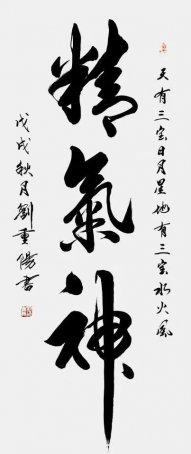 天有三宝日月星地有三宝水火风
精氣神
戊戌秋月劉重陽書